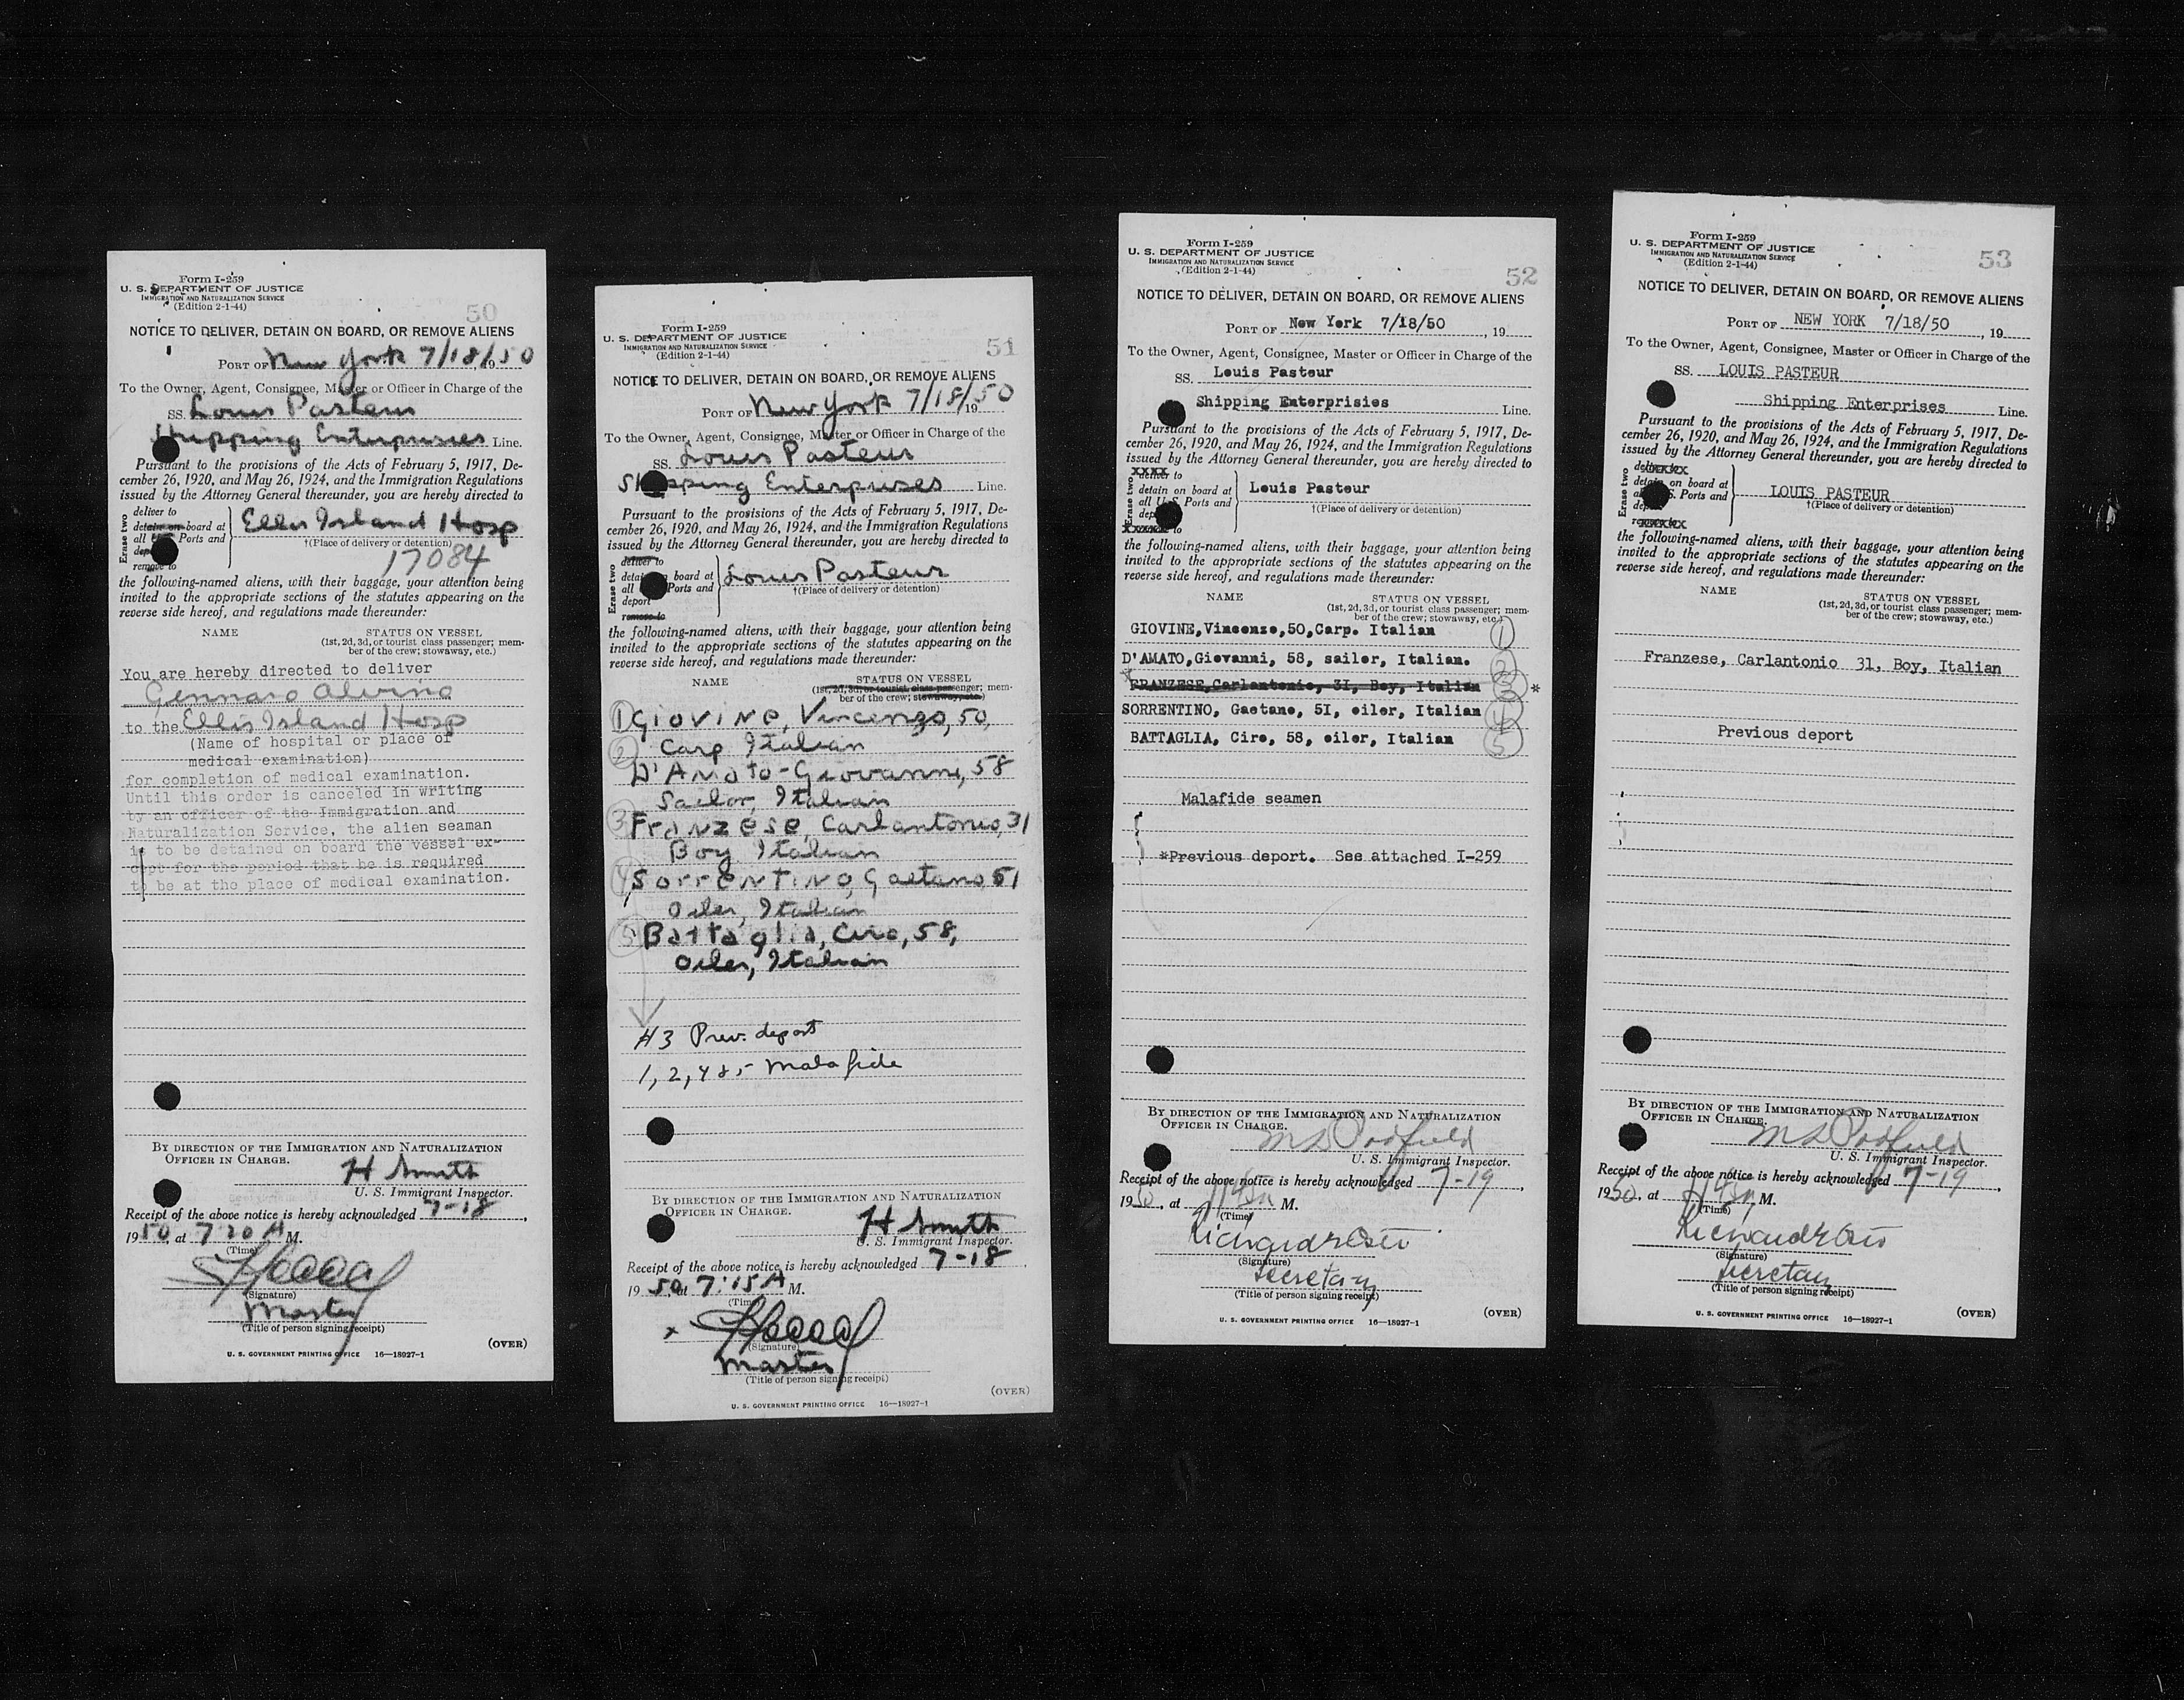 Form I-259
U. S. DEPARTMENT OF JUSTICE
IMMIGRATION AND NATURALIZATION SERVICE
(Edition 2-1-44)
50
NOTICE TO DELIVER, DETAIN ON BOARD, OR REMOVE ALIENS
PORT OF New York 7/18/50
To the Owner, Agent, Consignee, Master or Officer in Charge of the
SS. Louis Pasteur
Shipping Enterprises Line.
Pursuant to the provisions of the Acts of February 5, 1917, De-
cember 26, 1920, and May 26, 1924, and the Immigration Regulations
issued by the Attorney General thereunder, you are hereby directed to
Erase two
deliver to
detain on board at
all Ports and
remove to
Ellis Island Hosp
†(Place of delivery or detention)
17084
the following-named aliens, with their baggage, your attention being
invited to the appropriate sections of the statutes appearing on the
reverse side hereof, and regulations made thereunder:
NAME STATUS ON VESSEL
(1st, 2d, 3d, or tourist class passenger; mem-
ber of the crew; stowaway, etc.)
You are hereby directed to deliver
Gennaro Alvino
to the Ellis Island Hosp
(Name of hospital or place of
medical examination)
for completion of medical examination.
Until this order is canceled in writing
by an officer of the Immigration and
Naturalization Service, the alien seaman
is to be detained on board the vessel ex-
cept for the period that he is required
to be at the place of medical examination.
BY DIRECTION OF THE IMMIGRATION AND NATURALIZATION
OFFICER IN CHARGE.
H Smith
U. S. Immigrant Inspector.
Receipt of the above notice is hereby acknowledged 7-18,
1950, at 7 20 A M.
(Time)
(Signature)
Master
(Title of person signing receipt)
(OVER)
U. S. GOVERNMENT PRINTING OFFICE 16—18927-1
Form I-259
U. S. DEPARTMENT OF JUSTICE
IMMIGRATION AND NATURALIZATION SERVICE
(Edition 2-1-44)
51
NOTICE TO DELIVER, DETAIN ON BOARD, OR REMOVE ALIENS
PORT OF New York 7/18/1950
To the Owner, Agent, Consignee, Master or Officer in Charge of the
SS. Louis Pasteur
Shipping Enterprises Line.
Pursuant to the provisions of the Acts of February 5, 1917, De-
cember 26, 1920, and May 26, 1924, and the Immigration Regulations
issued by the Attorney General thereunder, you are hereby directed to
Erase two
deliver to
detain board at
all Ports and
deport
remove to
Louis Pasteur
†(Place of delivery or detention)
the following-named aliens, with their baggage, your attention being
invited to the appropriate sections of the statutes appearing on the
reverse side hereof, and regulations made thereunder:
NAME STATUS ON VESSEL
(1st, 2d, 3d, or tourist class passenger; mem-
ber of the crew; stowaway, etc.)
1 Giovine, Vincenzo, 50,
2 Carp Italian
D'Amato-Giovanni, 58
Sailor, Italian
3 Franzese, Carlantonio, 31
Boy Italian
4 Sorrentino, Gaetano, 51
Oiler, Italian
5 Battaglia, Ciro, 58,
Oiler, Italian
#3 Prev. deport
1, 2, 4 & 5 Mala fide
BY DIRECTION OF THE IMMIGRATION AND NATURALIZATION
OFFICER IN CHARGE.
H Smith
U. S. Immigrant Inspector.
Receipt of the above notice is hereby acknowledged 7-18,
1950 at 7:15 A M.
(Time)
x
(Signature)
Master
(Title of person signing receipt)
(OVER)
U. S. GOVERNMENT PRINTING OFFICE 16—18927-1
Form I-259
U. S. DEPARTMENT OF JUSTICE
IMMIGRATION AND NATURALIZATION SERVICE
(Edition 2-1-44)
52
NOTICE TO DELIVER, DETAIN ON BOARD, OR REMOVE ALIENS
PORT OF New York 7/18/50, 19
To the Owner, Agent, Consignee, Master or Officer in Charge of the
SS. Louis Pasteur
Shipping Enterprisies Line.
Pursuant to the provisions of the Acts of February 5, 1917, De-
cember 26, 1920, and May 26, 1924, and the Immigration Regulations
issued by the Attorney General thereunder, you are hereby directed to
Erase two
xxxx
deliver to
detain on board at
all U.S. Ports and
xxxxx to
Louis Pasteur
†(Place of delivery or detention)
the following-named aliens, with their baggage, your attention being
invited to the appropriate sections of the statutes appearing on the
reverse side hereof, and regulations made thereunder:
NAME STATUS ON VESSEL
(1st, 2d, 3d, or tourist class passenger; mem-
ber of the crew; stowaway, etc.)
GIOVINE,Vincenzo,50,Carp. Italian 1
D'AMATO,Giovanni, 58, sailor, Italian. 2
*FRANZESE,Carlantonio, 3I, Boy, Italian 3 *
SORRENTINO, Gaetano, 5I, oiler, Italian 4
BATTAGLIA, Ciro, 58, oiler, Italian 5
Malafide seamen
*Previous deport. See attached I-259
BY DIRECTION OF THE IMMIGRATION AND NATURALIZATION
OFFICER IN CHARGE.
U. S. Immigrant Inspector.
Receipt of the above notice is hereby acknowledged 7-19,
1950, at M.
(Time)
(Signature)
Secretary
(Title of person signing receipt)
(OVER)
U. S. GOVERNMENT PRINTING OFFICE 16—18927-1
Form I-259
U. S. DEPARTMENT OF JUSTICE
IMMIGRATION AND NATURALIZATION SERVICE
(Edition 2-1-44)
53
NOTICE TO DELIVER, DETAIN ON BOARD, OR REMOVE ALIENS
PORT OF NEW YORK 7/18/50, 19
To the Owner, Agent, Consignee, Master or Officer in Charge of the
SS. LOUIS PASTEUR
Shipping Enterprises Line.
Pursuant to the provisions of the Acts of February 5, 1917, De-
cember 26, 1920, and May 26, 1924, and the Immigration Regulations
issued by the Attorney General thereunder, you are hereby directed to
Erase two
detain on board at
S. Ports and
LOUIS PASTEUR
†(Place of delivery or detention)
the following-named aliens, with their baggage, your attention being
invited to the appropriate sections of the statutes appearing on the
reverse side hereof, and regulations made thereunder:
NAME STATUS ON VESSEL
(1st, 2d, 3d, or tourist class passenger; mem-
ber of the crew; stowaway, etc.)
Franzese, Carlantonio 31, Boy, Italian
Previous deport
BY DIRECTION OF THE IMMIGRATION AND NATURALIZATION
OFFICER IN CHARGE.
U. S. Immigrant Inspector.
Receipt of the above notice is hereby acknowledged 7-19,
1950, at M.
(Time)
(Signature)
Secretary
(Title of person signing receipt)
(OVER)
U. S. GOVERNMENT PRINTING OFFICE 16—18927-1